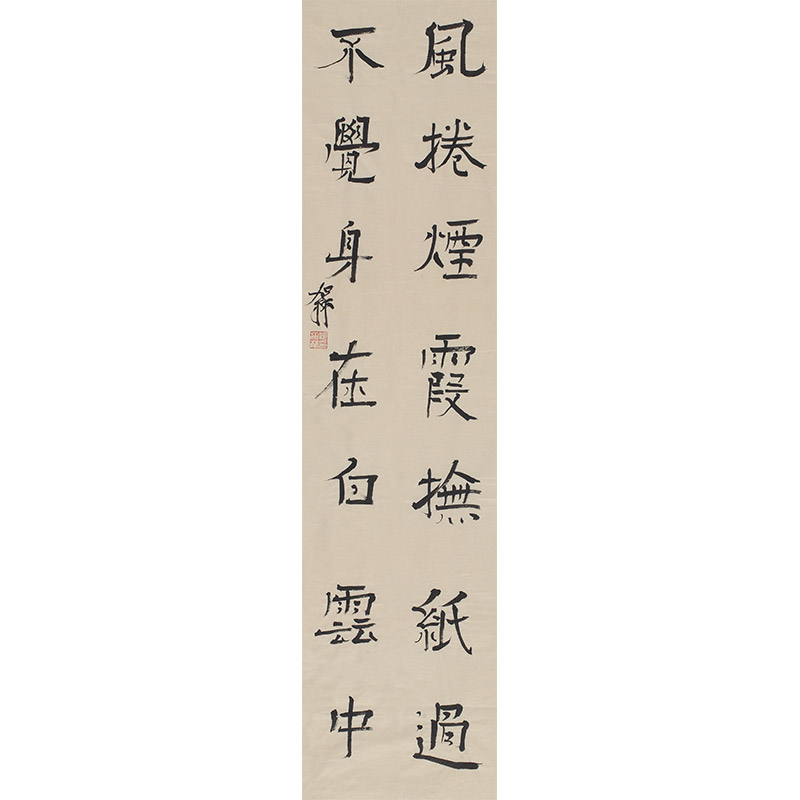 風捲煙霞撫紙過
不覺身在白雲中